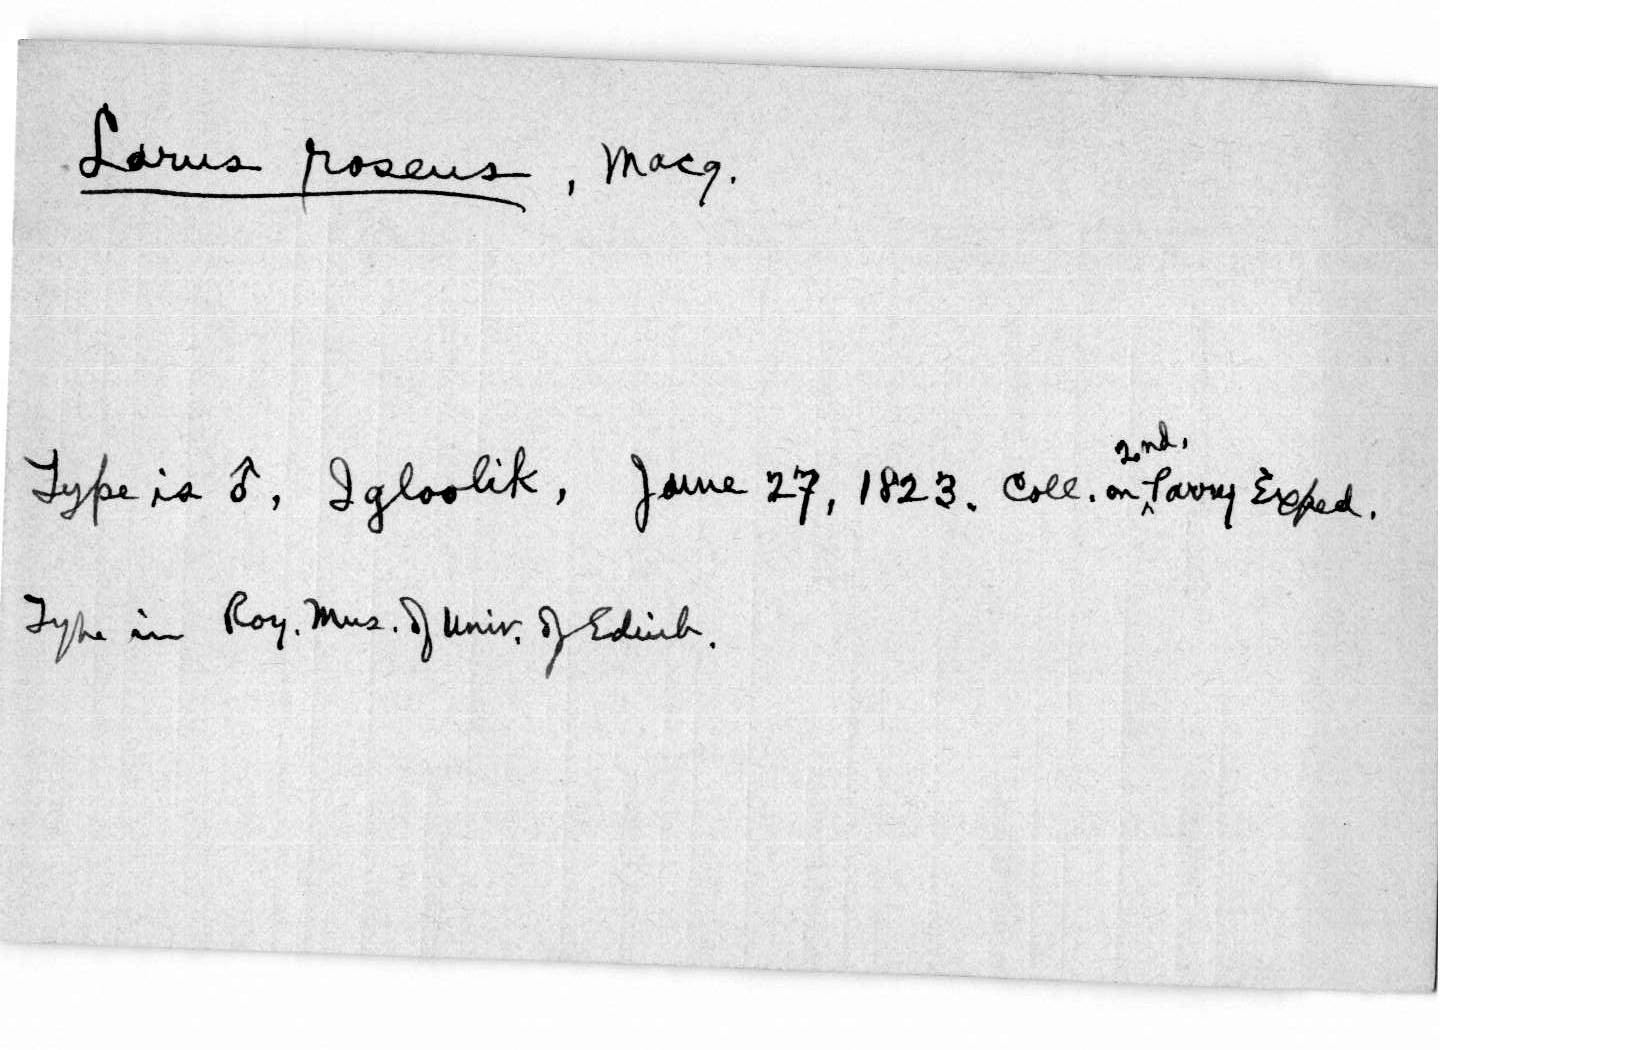 Larus roseus, Macg.
Type is ♂, Igloolik, June 27, 1823. Coll. on 2nd. Parry Exped.
Type in Roy. Mus. of Univ. of Edinb.